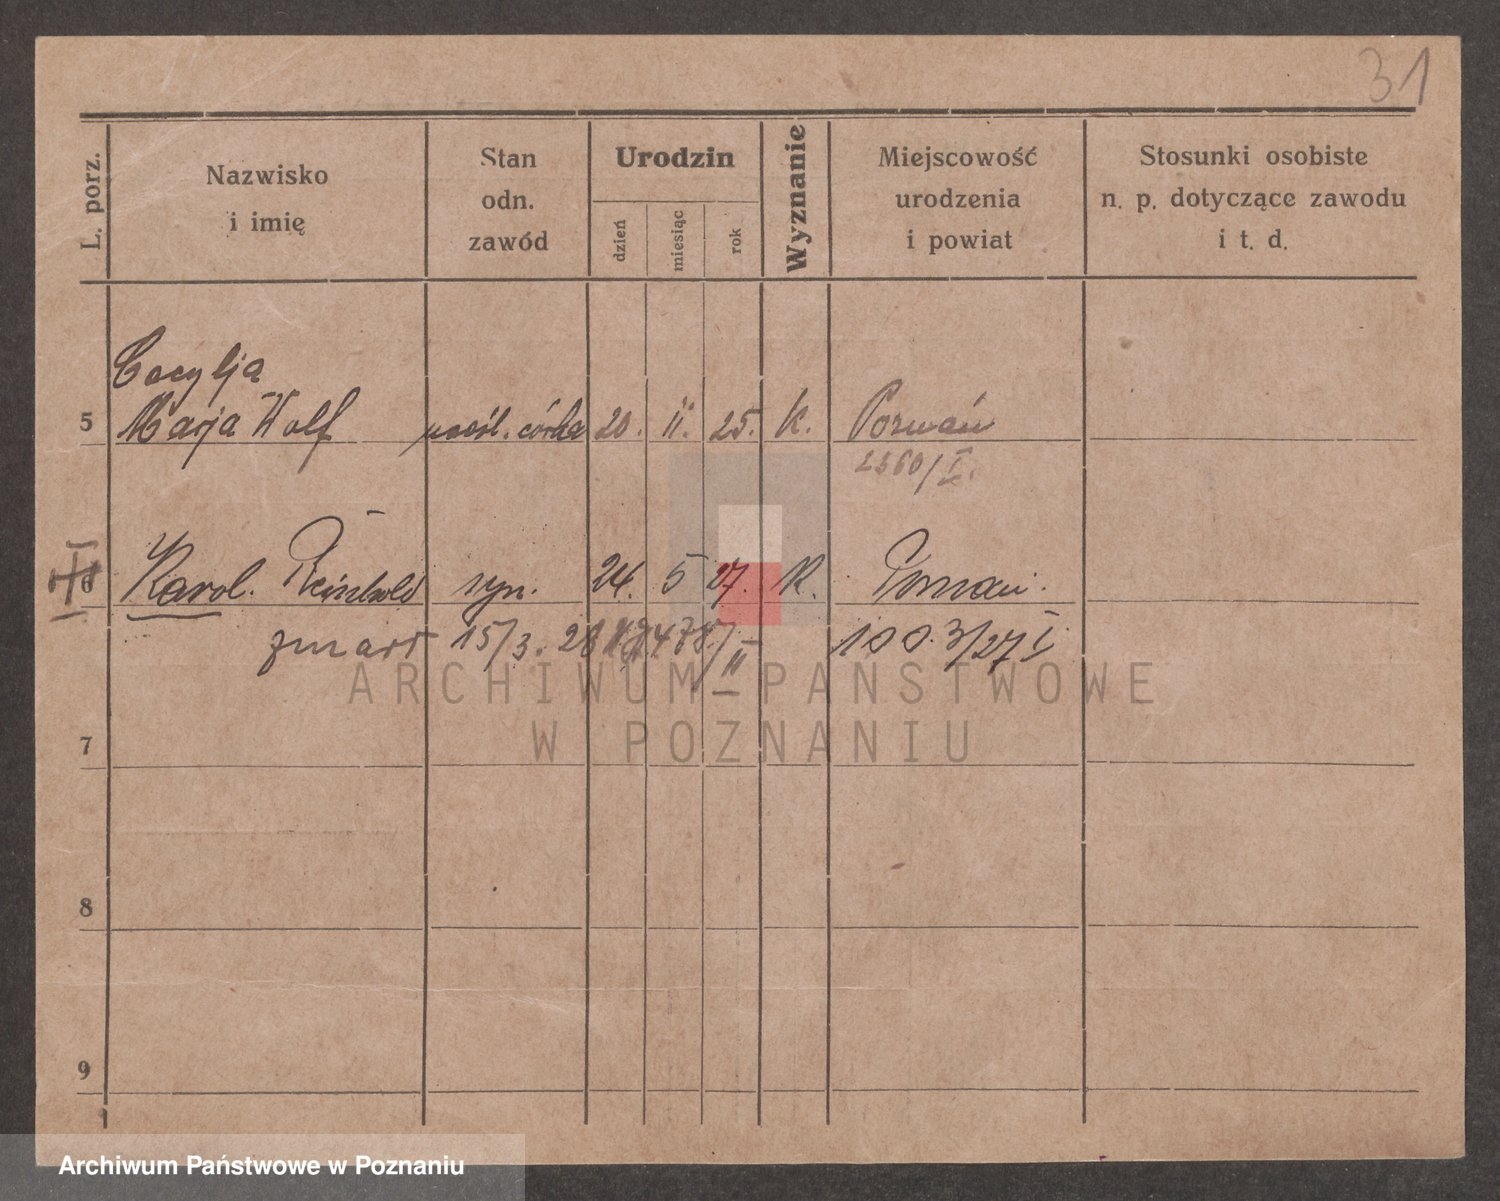 31
L. porz.
Nazwisko
i imię
Stan
odn.
zawód
Urodzin
dzień
miesiąc
rok
Wyznanie
Miejscowość
urodzenia
i powiat
Stosunki osobiste
n. p. dotyczące zawodu
i t. d.
Cecylja
5 Marja Wolf córka 20. II. 25. K. Poznań
2360/I.
6 Karol. Reinhold syn. 24. 5 27. K. Poznań.
zmarł 15/3. 28 478/II 1003/27 I
ARCHIWUM PAŃSTWOWE
W POZNANIU
7
8
9
Archiwum Państwowe w Poznaniu